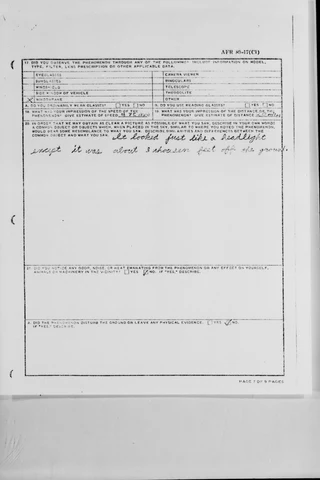 AFR 80-17(C1)
DID YOU OBSERVE THE PHENOMENON THROUGH ANY OF THE FOLLOWING? INCLUDE INFORMATION ON MODEL, TYPE, FILTER, LENS PRESCRIPTION OR OTHER APPLICABLE DATA.
EYEGLASSES CAMERA VIEWER
SUNGLASSES BINOCULARS
WINDSHIELD TELESCOPE
SIDE WINDOW OF VEHICLE THEODOLITE
WINDOWPANE OTHER
A. DO YOU ORDINARILY WEAR GLASSES? YES NO B. DO YOU USE READING GLASSES? YES NO
WHAT WAS YOUR IMPRESSION OF THE SPEED OF THE PHENOMENON? GIVE ESTIMATE OF SPEED WHAT WAS YOUR IMPRESSION OF THE DISTANCE OF THE PHENOMENON? GIVE ESTIMATE OF DISTANCE
IN ORDER THAT WE MAY OBTAIN AS CLEAR A PICTURE AS POSSIBLE OF WHAT YOU SAW, DESCRIBE IN YOUR OWN WORDS
A COMMON OBJECT OR OBJECTS WHICH, WHEN PLACED IN THE SKY, SIMILAR TO WHERE YOU NOTED THE PHENOMENON,
WOULD BEAR SOME RESEMBLANCE TO WHAT YOU SAW. DESCRIBE SIMILARITIES AND DIFFERENCES BETWEEN THE
COMMON OBJECT AND WHAT YOU SAW. It looked just like a headlight
except it was about 3 feet off the ground.
DID YOU NOTICE ANY ODOR, NOISE, OR HEAT EMANATING FROM THE PHENOMENON OR ANY EFFECT ON YOURSELF,
ANIMALS OR MACHINERY IN THE VICINITY? YES NO. IF "YES," DESCRIBE.
DID THE PHENOMENON DISTURB THE GROUND OR LEAVE ANY PHYSICAL EVIDENCE? YES NO.
IF "YES," DESCRIBE.
PAGE 7 OF 9 PAGES